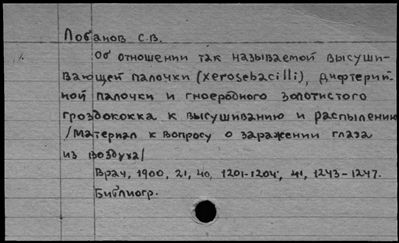 Лобанов С.В.
Об отношении так называемой высуши-
вающей палочки (xerosebacilli), дифтерий-
ной палочки и гноеродного золотистого
гроздококка к высушиванию и распылению
/материал к вопросу о заражении глаза
из воздуха/
Врач, 1900, 21, 40, 1201-1204, 41, 1243-1247.
Библиогр.